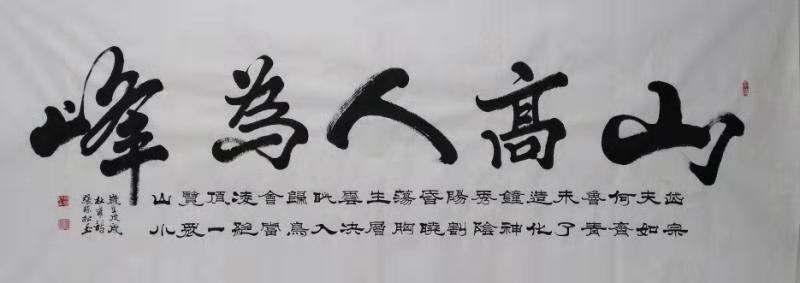 山高人為峰
岱宗
夫如
何齊
魯青
未了
造化
鐘神
秀陰
陽割
昏曉
蕩胸
生層
雲決
眥入
歸鳥
會當
凌絕
頂一
覽眾
山小
歲在戊戌
杜甫詩